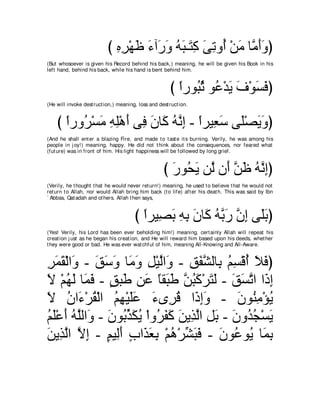 ﴿وَأَمَّا مَنْ أُوتِىَ كِتَـبَهُ وَرَآءَ ظَهْرِهِ ﴾
(But whosoever is given his Record behind his back,) meaning, he will be given his Book in his
left hand, behind his back, while his hand is bent behind him.
﴿فَسَوْفَ يَدْعُو ثُبُوراً ﴾
(He will invoke destruction,) meaning, loss and destruction.
﴿وَيَصْلَى سَعِيراً - إِنَّهُ كَانَ فِى أَهْلِهِ مَسْرُوراً ﴾
(And he shall enter a blazing Fire, and made to taste its burning. Verily, he was among his
people in joy!) meaning, happy. He did not think about the consequences, nor feared what
(future) was in front of him. His light happiness will be followed by long grief.
﴿إِنَّهُ ظَنَّ أَن لَّن يَحُورَ ﴾
(Verily, he thought that he would never return!) meaning, he used to believe that he would not
return to Allah, nor would Allah bring him back (to life) after his death. This was said by Ibn
`Abbas, Qatadah and others. Allah then says,
﴿بَلَى إِنَّ رَبَّهُ كَانَ بِهِ بَصِيراً ﴾
(Yes! Verily, his Lord has been ever beholding him!) meaning, certainly Allah will repeat his
creation just as he began his creation, and He will reward him based upon his deeds, whether
they were good or bad. He was ever watchful of him, meaning All-Knowing and All-Aware.
﴿فَلاَ أُقْسِمُ بِالشَّفَقِ - وَالَّيْلِ وَمَا وَسَقَ - وَالْقَمَرِ
إِذَا اتَّسَقَ - لَتَرْكَبُنَّ طَبَقاً عَن طَبقٍ - فَمَا لَهُمْ لاَ
يُؤْمِنُونَ - وَإِذَا قُرِىءَ عَلَيْهِمُ الْقُرْءَانُ لاَ
يَسْجُدُونَ - بَلِ الَّذِينَ كَفَرُواْ يُكَذِّبُونَ - وَاللَّهُ أَعْلَمُ
بِمَا يُوعُونَ - فَبَشِّرْهُمْ بِعَذَابٍ أَلِيمٍ - إِلاَّ الَّذِينَ